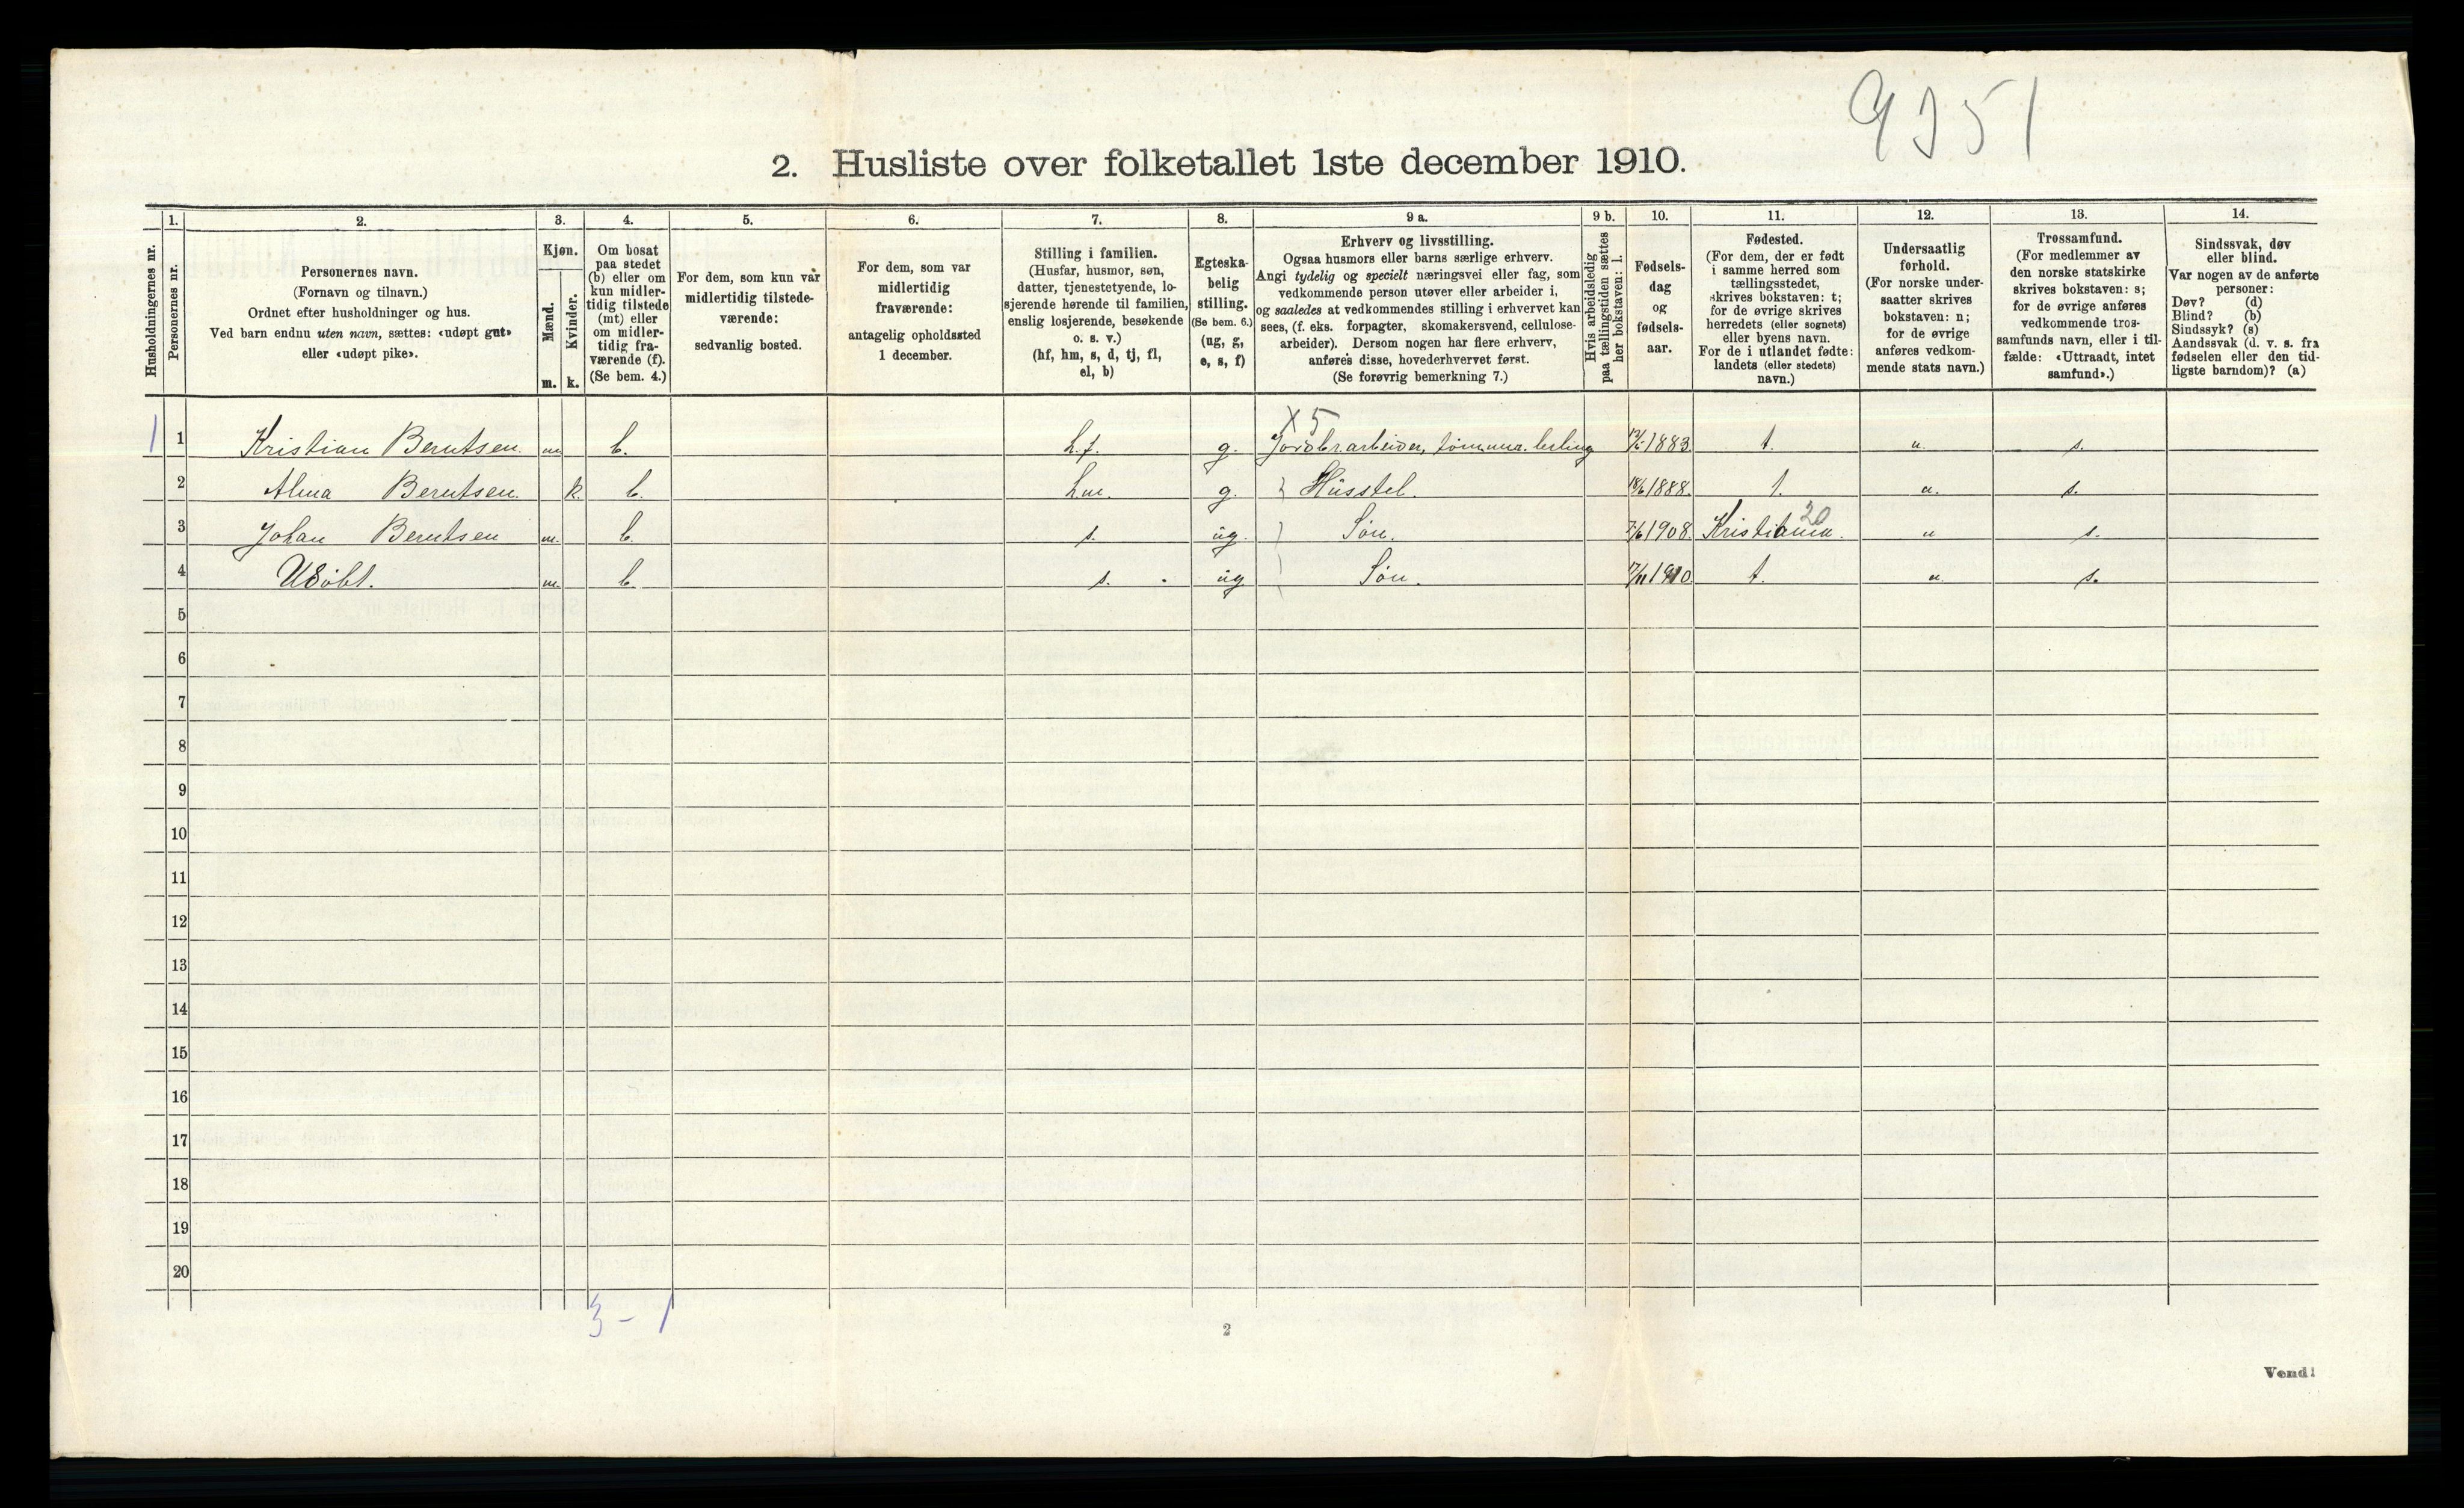 9351
2. Husliste over folketallet 1ste december 1910.
Husholdningernes nr.
1.
Personernes nr.
2.
Personernes navn.
(Fornavn og tilnavn.)
Ordnet efter husholdninger og hus.
Ved barn endnu uten navn, sættes: «udøpt gut»
eller «udøpt pike».
3.
Kjøn.
Mænd.
Kvinder.
m. k.
4.
Om bosat
paa stedet
(b) eller om
kun midler-
tidig tilstede
(mt) eller
om midler-
tidig fra-
værende (f).
(Se bem. 4.)
5.
For dem, som kun var
midlertidig tilstede-
værende:
sedvanlig bosted.
6.
For dem, som var
midlertidig
fraværende:
antagelig opholdssted
1 december.
7.
Stilling i familien.
(Husfar, husmor, søn,
datter, tjenestetyende, lo-
sjerende hørende til familien,
enslig losjerende, besøkende
o. s. v.)
(hf, hm, s, d, tj, fl,
el, b)
8.
Egteska-
belig
stilling.
(Se bem. 6.)
(ug, g,
e, s, f)
9 a.
Erhverv og livsstilling.
Ogsaa husmors eller barns særlige erhverv.
Angi tydelig og specielt næringsvei eller fag, som
vedkommende person utøver eller arbeider i,
og saaledes at vedkommendes stilling i erhvervet kan
sees, (f. eks. forpagter, skomakersvend, cellulose-
arbeider). Dersom nogen har flere erhverv,
anføres disse, hovederhvervet først.
(Se forøvrig bemerkning 7.)
9 b.
Hvis arbeidsledig
paa tællingstiden sættes
her bokstaven: l.
10.
Fødsels-
dag
og
fødsels-
aar.
11.
Fødested.
(For dem, der er født
i samme herred som
tællingsstedet,
skrives bokstaven: t;
for de øvrige skrives
herredets (eller sognets)
eller byens navn.
For de i utlandet fødte:
landets (eller stedets)
navn.)
12.
Undersaatlig
forhold.
(For norske under-
saatter skrives
bokstaven: n;
for de øvrige
anføres vedkom-
mende stats navn.)
13.
Trossamfund.
(For medlemmer av
den norske statskirke
skrives bokstaven: s;
for de øvrige anføres
vedkommende tros-
samfunds navn, eller i til-
fælde: «Uttraadt, intet
samfund».)
14.
Sindssvak, døv
eller blind.
Var nogen av de anførte
personer:
Døv? (d)
Blind? (b)
Sindssyk? (s)
Aandssvak (d. v. s. fra
fødselen eller den tid-
ligste barndom)? (a)
X 5
1 1 Kristian Berntsen. m b. h.f. g. Jordbrarbeider, 1883. t. n. s.
2 Alma Berntsen. k. b. hm. g. Husstel. 1888. t. n. s.
20
3 Johan Berntsen m. b. s. ug. Søn. 1908. Kristiania. n s.
4 Udøbt. m. b. s. ug Søn. 1910 t. n. s.
5
6
7
8
9
10
11
12
13
14
15
16
17
18
19
20
3 - 1
2
Vend!